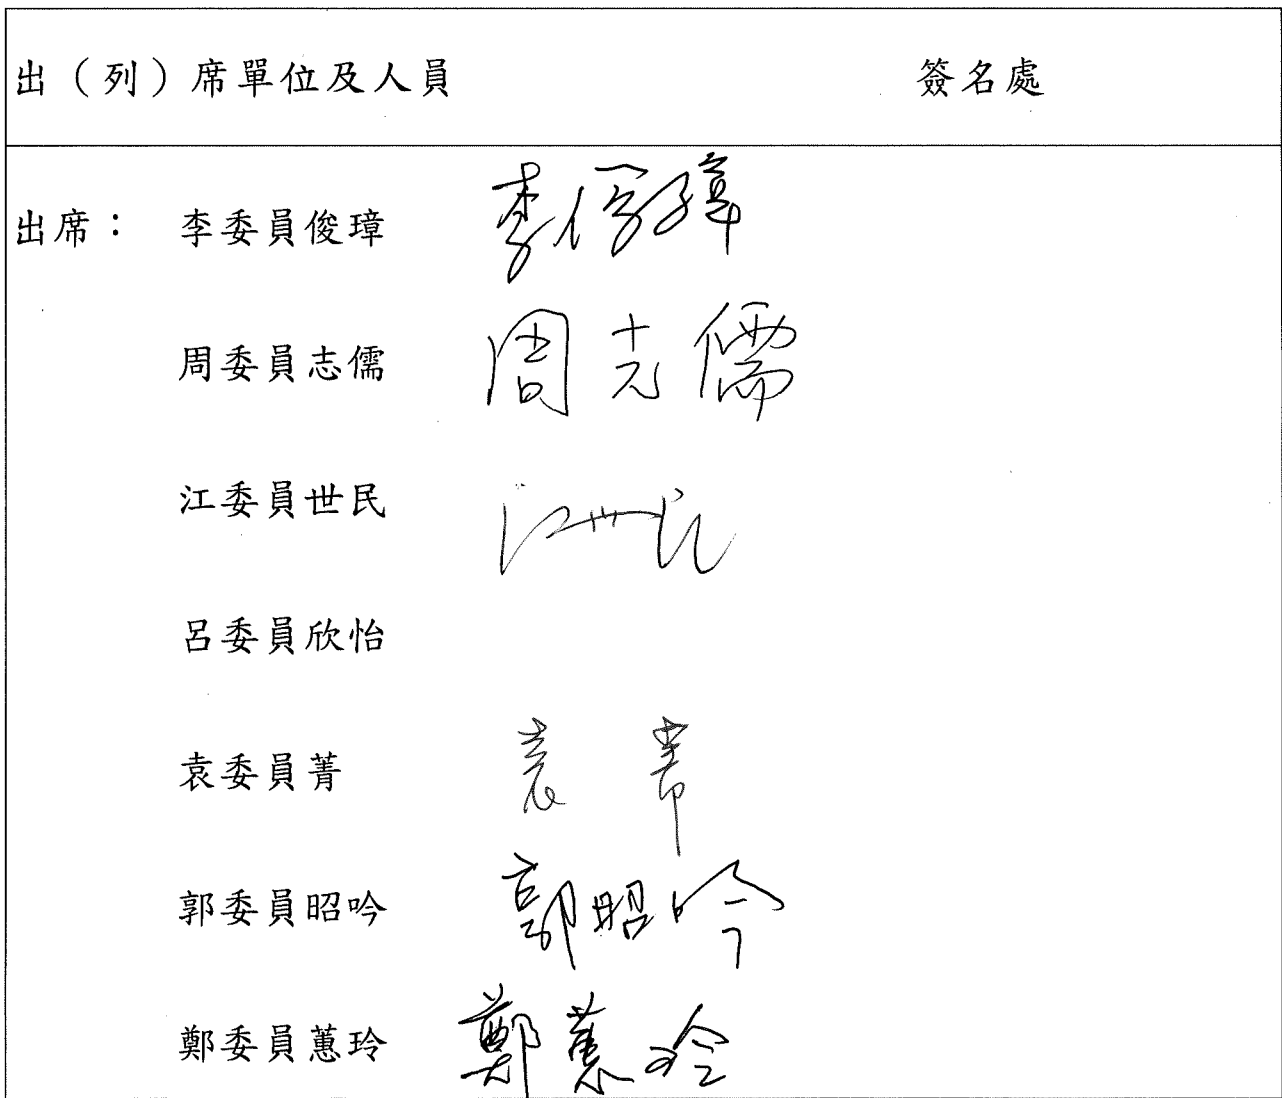 出（列）席單位及人員 簽名處
出席： 李委員俊璋 李俊璋
周委員志儒 周志儒
江委員世民 江世民
呂委員欣怡
袁委員菁 袁菁
郭委員昭吟 郭昭吟
鄭委員蕙玲 鄭蕙玲